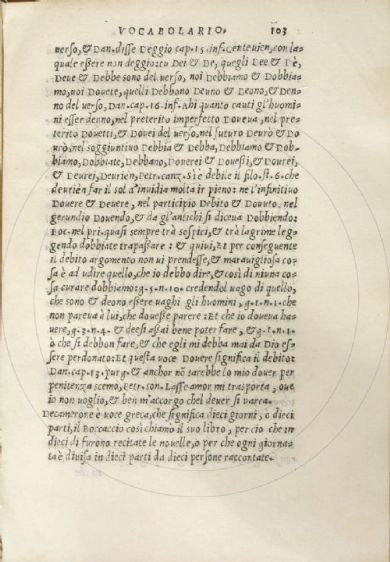 VOCABOLARIO. 103
uerso, & Dan. disse Deggio cap. 15. inf. Cente uien, con la
quale eßere non deggio: tu Dei & De, quegli Dee & Dè,
Deue & Debbe sono del uerso, noi Debbiamo & Dobbia-
mo, uoi Douete, quelli Debbono Deuno & Deono, & Den-
no del uerso, Dan. cap. 16. inf. Ahi quanto cauti gl'huomi-
ni esser denno, nel preterito imperfetto Doueua, nel pre-
terito Douetti, & Douei del uerso, nel futuro Deurò & Do
urò, nel soggiuntiuo Debbia & Debba, Debbiamo & Dob-
biamo, Dobbiate, Debbano, Douerei & Douesti, & Dourei,
& Deurei, Deurien, Petr. canz. S'i è debile il filo. st. 6. che
deurièn far il sol d'inuidia molta ir pieno: ne l'infinitiuo
Douere & Deuere, nel participio Debito & Douuto, nel
gerundio Douendo, & da gl'antichi si diceua Dobbiendo:
Boc. nel pri. quasi sempre trà sospiri, & trà lagrime leg-
gendo dobbiate trapassare: & quiui, Et per conseguente
il debito argomento non ui prendesse, & marauigliosa co-
sa è ad udire quello, che io debbo dire, & così di niuna co-
sa curare dobbiamo: g. 5. n. 10. credendol uago di quello,
che sono & deono eßere uaghi gli huomini, g. 1. n. 1. che
non pareua à lui, che doueße parere: Et che io doueua ha-
uere, g. 2. n. 4. & deesi assai bene poter fare, & g. 1. n. 1.
ò che si debbon fare, & che egli mi debba mai da Dio es-
sere perdonato: Et questa uoce Douere significa il debito:
Dan. cap. 13. purg. & anchor nõ sarebbe lo mio douer per
penitenza scemo, Petr. son. Lasse amor mi trasporta, oue
io non uoglio, & ben m'accorgo chel deuer si uarca.
Decamerone è uoce greca, che significa dieci giorni, o dieci
parti, il Boccaccio così chiamo il suo libro, per cio che in
dieci dì furono recitate le nouelle, o per che ogni giorna-
ta è diuisa in dieci parti da dieci persone raccontate.